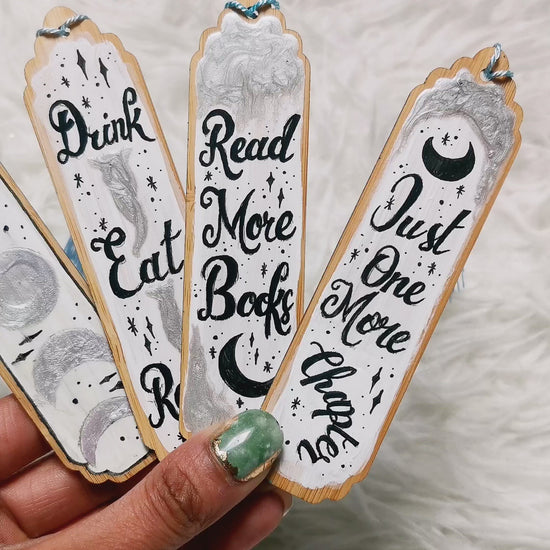 Drink
Eat
Read
More
Books
Just
One
More
Chapter